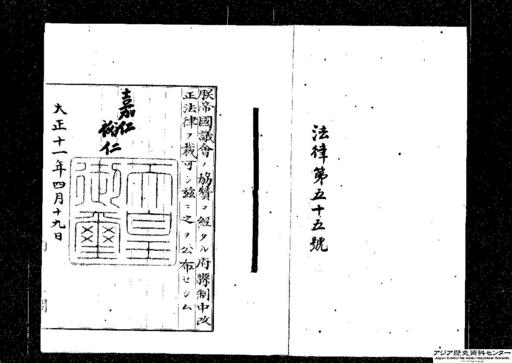 法律第五十五號
朕帝國議會ノ協賛ヲ經タル府縣制中改
正法律ヲ裁可シ茲ニ之ヲ公布セシム
嘉仁
裕仁
天皇御璽
大正十一年四月十九日
アジア歴史資料センター
Japan Center for Asian Historical Records